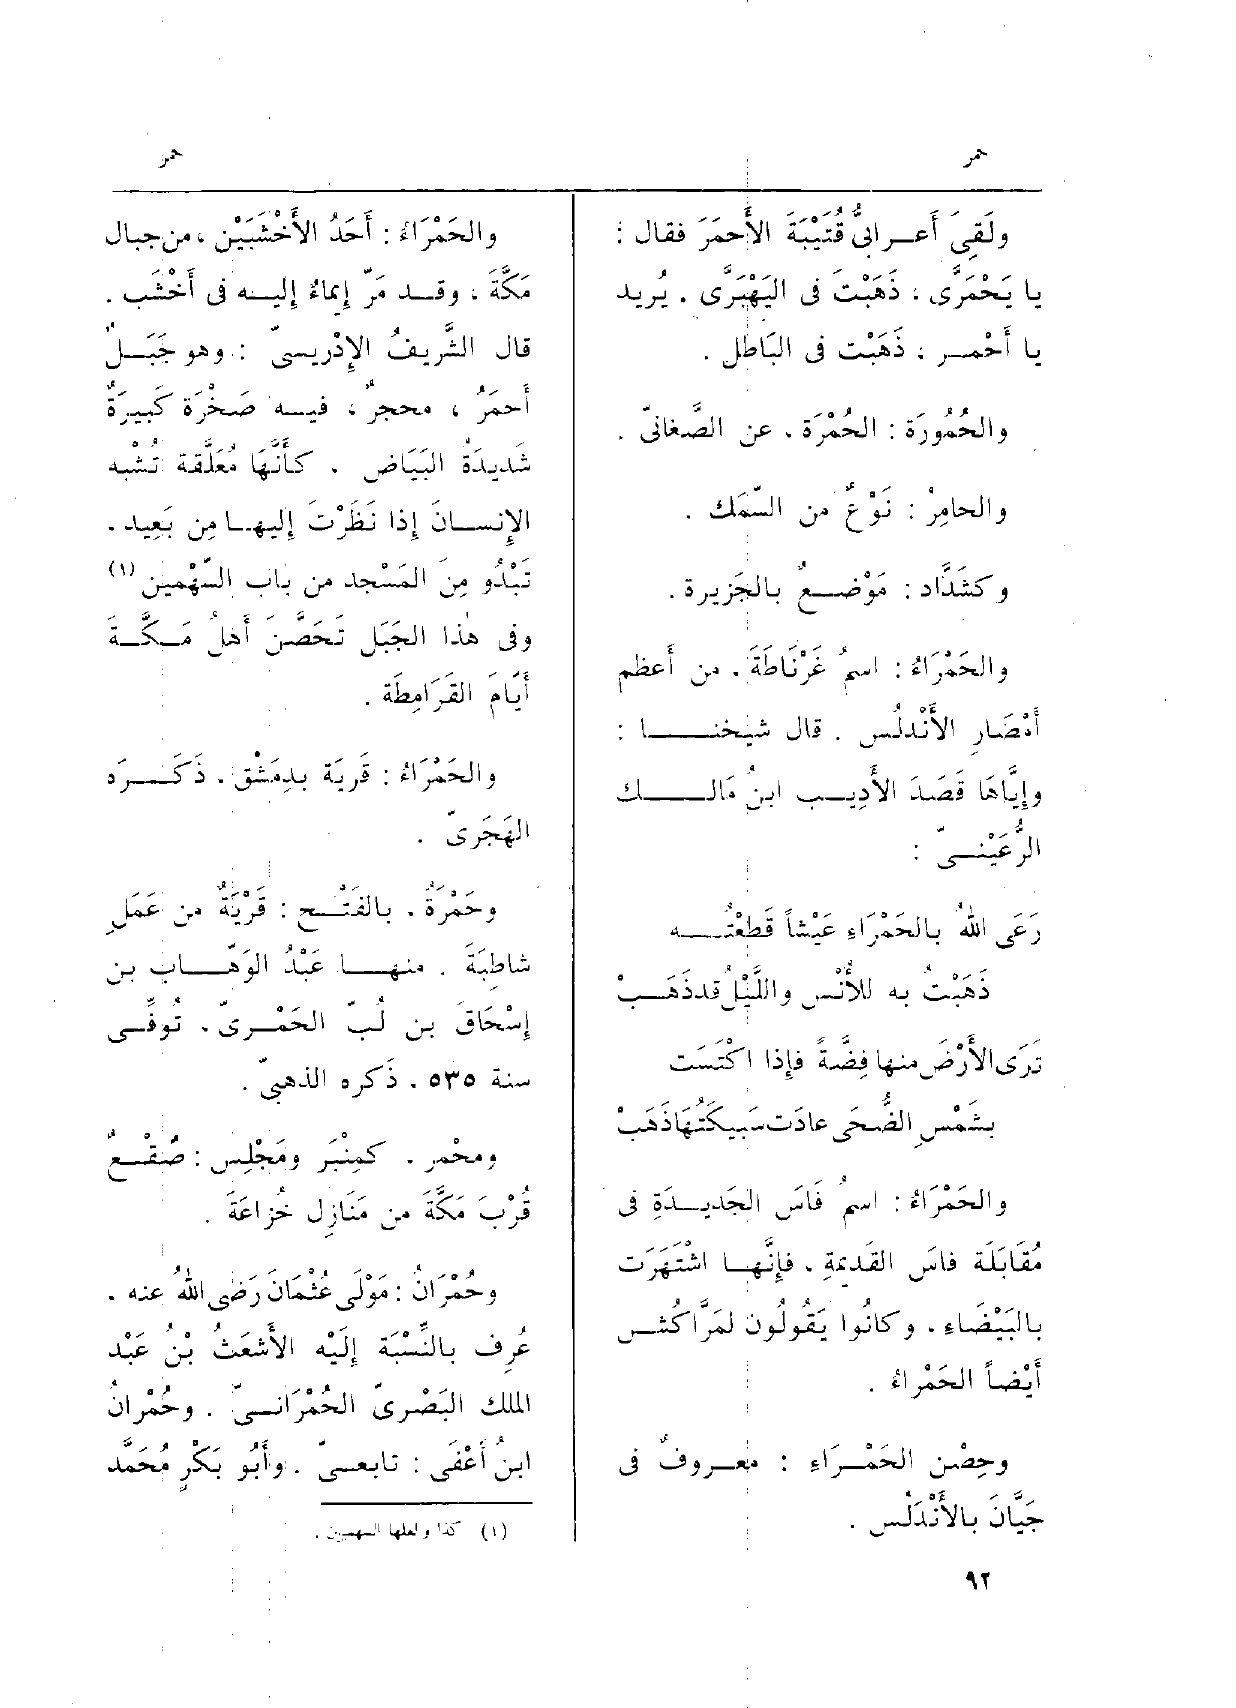 حمر
حمر
ولَقِىَ أَعـرابىٌّ قُتَيْبَةَ الأَحمَرَ فقال :
يا يَحْمَرَّى ، ذَهَبْتَ فى اليَهْيَرَّى . يُريد
يا أَحْمـر ، ذَهَبْت فى البَاطل .
والحُمُورَة : الحُمْرَة ، عن الصَّغانىّ .
والحامِرْ : نَوْعٌ من السّمَك .
وكشَدَّاد : مَوْضـعٌ بالجَزيرة .
والحَمْرَاءُ : اسمُ غَرْنَاطَةَ ، من أَعظم
أَمْصَارِ الأَنْدلُس . قال شيخنـا :
وإِيَّاهَا قَصَدَ الأَدِيـب ابنُ مَالـك
الرُّعَيْنـىّ :
رَعَى اللهُ بالحَمْرَاءِ عَيْشاً قَطَعْتُـه
ذَهَبْتُ به للأُنْس واللَّيْلُ قد ذَهَـبْ
تَرَى الأَرْضَ منها فِضَّةً فإِذا اكْتَسَت
بشَمْسِ الضُّحَى عادَت سَبِيكَتُهَا ذَهَبْ
والحَمْرَاءُ : اسمُ فَاسَ الجَديـدَةِ فى
مُقَابَلَة فاسَ القَديمةِ ، فإِنَّهـا اشْتَهَرَت
بالبَيْضَاءِ ، وكانُوا يَقُولُون لمَرَّاكُشـ
أَيْضاً الحَمْراءُ .
وحِصْن الحَمْـرَاءِ : معـروفٌ فى
جَيَّانَ بالأَنْدَلُس .
والحَمْرَاءُ : أَحَدُ الأَخْشَبَيْن ، من جبال
مَكَّةَ ، وقـد مَرّ إِيماءٌ إِليـه فى أَخْشَب .
قال الشَّريفُ الإِدْريسىّ : وهو جَبَـلٌ
أَحمَرُ ، محجرٌ ، فيـه صَخْرَة كَبِيرَةٌ
شَديدَةُ البَيَاض ، كأَنَّهَا مُعَلَّقة تُشْبه
الإِنسـانَ إِذا نَظَرْتَ إِليهـا مِن بَعِيد ،
تَبْدُو مِنَ المَسْجد من باب السَّهْمين (١)
وفى هٰذا الجَبَل تَحَصَّنَ أَهلُ مَـكَّـةَ
أَيّامَ القَرَامِطَة .
والحَمْرَاءُ : قَريَة بدِمَشْق ، ذَكَـرَه
الهَجَرىّ .
وحَمْرَةُ ، بالفَتْـح : قَرْيَةٌ من عَمَلِ
شاطِبَةَ . منهـا عَبْدُ الوَهّـاب بن
إِسْحَاقَ بن لُبّ الحَمْـرىّ ، تُوفِّـى
سنة ٥٣٥ ، ذَكره الذهبىّ .
ومحْمر ، كمِنْبَر ومَجْلِس : صُقْـعٌ
قُرْبَ مَكَّةَ من مَنَازِل خُزاعَةَ .
وحُمْرَانُ : مَوْلَى عُثْمَانَ رَضى اللهُ عنه ،
عُرِف بالنِّسْبَة إِلَيْه الأَشعَثُ بْنُ عَبْد
الملك البَصْرىّ الحُمْرَانـىّ . وحُمْرانُ
ابنُ أَعْفَى : تابعـىّ . وأَبُو بَكْرٍ مُحَمَّد
(١) كذا ولعلها السهميين .
٩٢